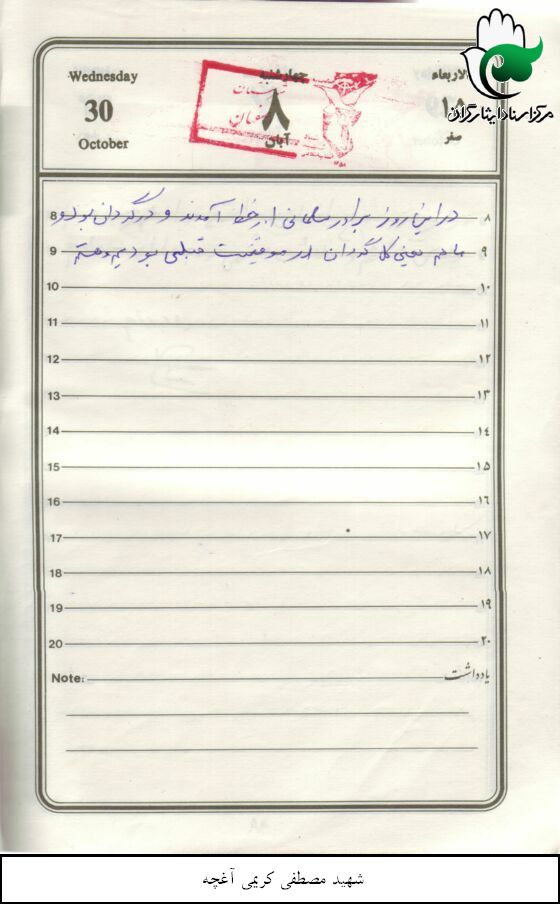 مرکز اسناد ایثارگران
Wednesday چهارشنبه الاربعاء
30 ۸ ۱۵
October آبان صفر
8 در این روز برادر سلمانی از خط آمدند و در گردان بود و ۸
9 ما هم یعنی کل گردان در موقعیت قبلی بودیم و هستم ۹
10 ۱۰
11 ۱۱
12 ۱۲
13 ۱۳
14 ۱٤
15 ۱۵
16 ۱٦
17 ۱۷
18 ۱۸
19 ۱۹
20 ۲۰
Note: یادداشت
شهید مصطفی کریمی آغچه